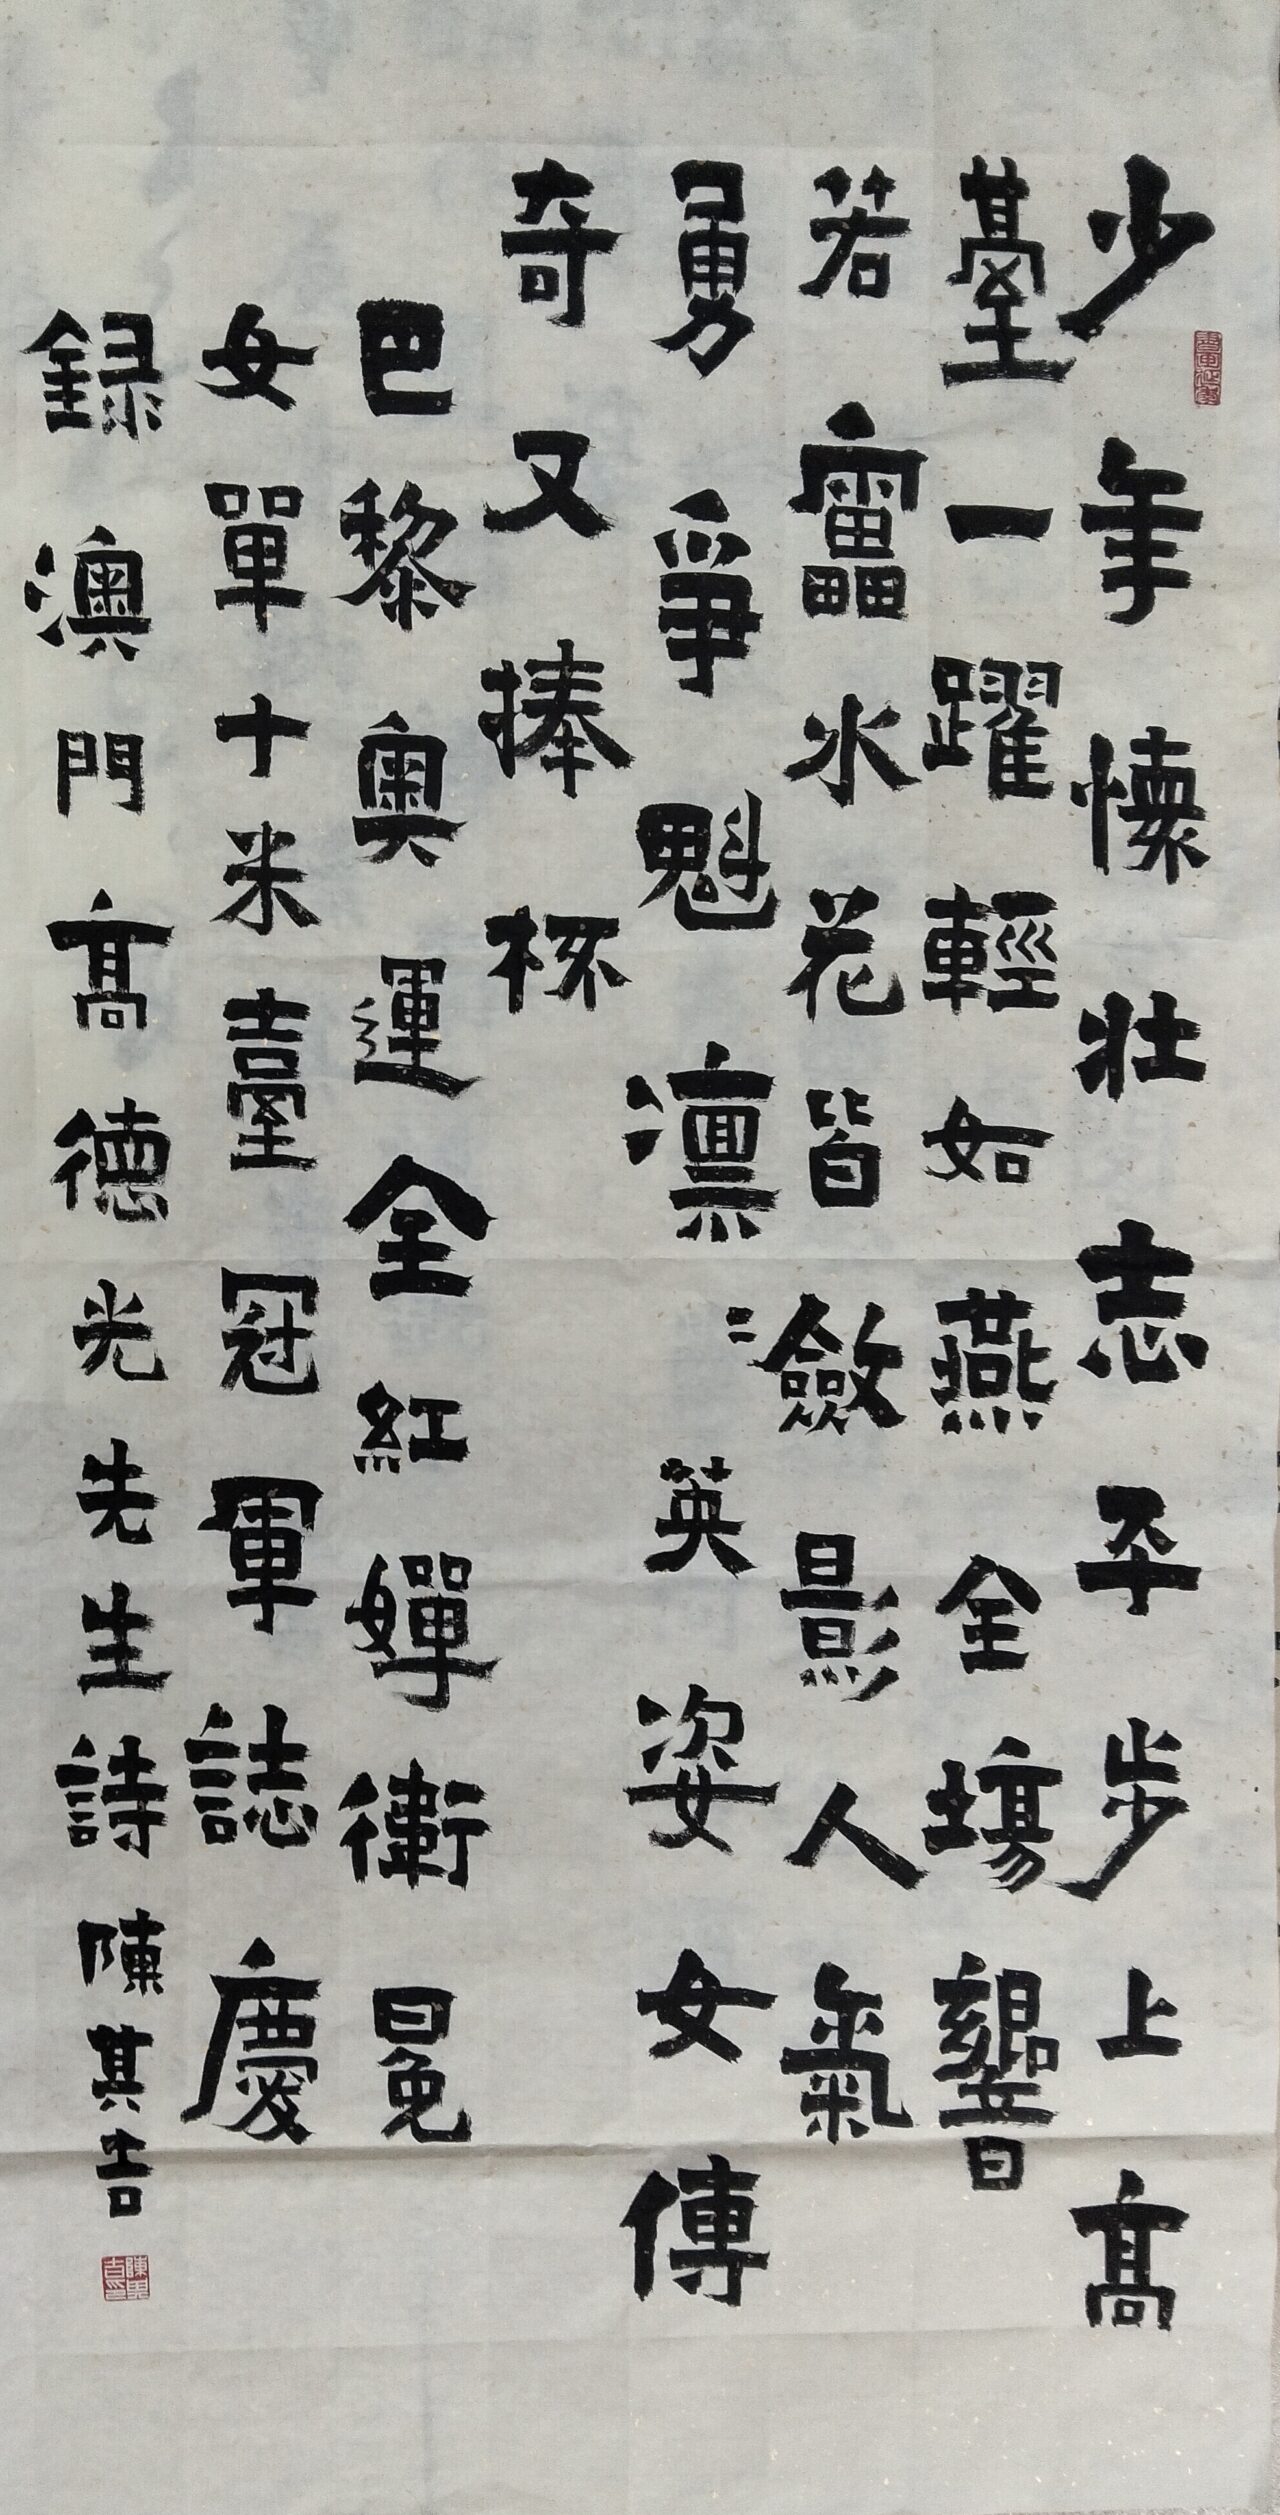 少年懷壯志平步上高
臺一躍輕如燕全場響
若靁水花皆斂影人氣
勇爭魁凜〻英姿女傳
奇又捧杯
巴黎奧運全紅嬋衛冕
女單十米臺冠軍誌慶
録澳門高德光先生詩陳其吉